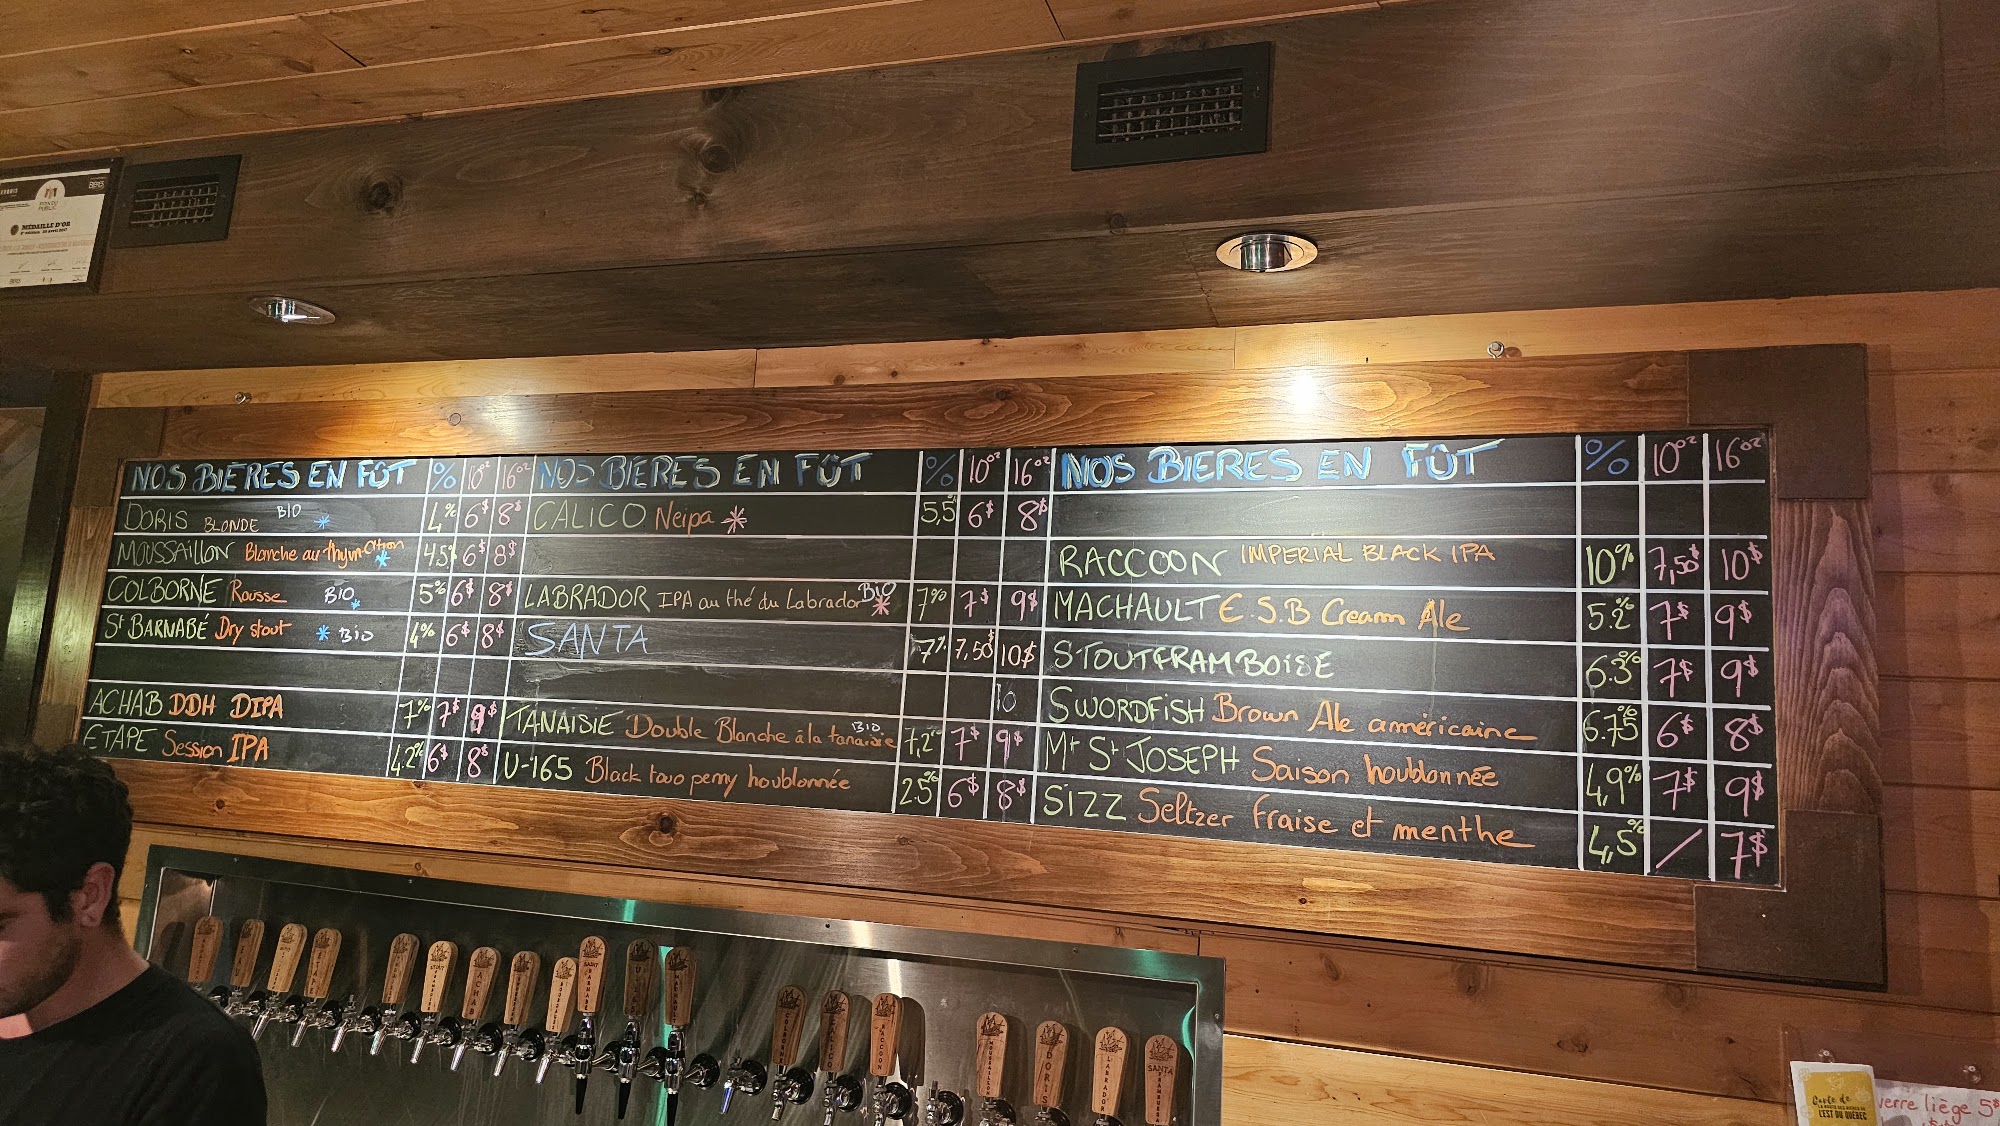 MÉDAILLE D'OR
NOS BIÈRES EN FÛT % 10oz 16oz
DORIS BLONDE BIO * 4% 6$ 8$
MOUSSAILLON Blanche au thym-citron * 4.5% 6$ 8$
COLBORNE Rousse BIO * 5% 6$ 8$
St BARNABÉ Dry stout * BIO 4% 6$ 8$
ACHAB DDH DIPA 7% 7$ 9$
ÉTAPE Session IPA 4.2% 6$ 8$
NOS BIÈRES EN FÛT % 10oz 16oz
CALICO Neipa * 5,5% 6$ 8$
LABRADOR IPA au thé du Labrador BIO * 7% 7$ 9$
SANTA 7% 7,50$ 10$
10
TANAISIE Double Blanche à la tanaisie BIO 7,2% 7$ 9$
U-165 Black two penny houblonnée 2.5% 6$ 8$
NOS BIERES EN FÛT % 10oz 16oz
RACCOON IMPERIAL BLACK IPA 10% 7,50$ 10$
MACHAULT E.S.B Cream Ale 5.2% 7$ 9$
STOUT FRAMBOISE 6.3% 7$ 9$
SWORDFISH Brown Ale américaine 6.75% 6$ 8$
Mt St JOSEPH Saison houblonnée 4,9% 7$ 9$
SIZZ Seltzer Fraise et menthe 4,5% / 7$
ÉTAPE
ACHAB
SAINT BARNABÉ
MACHAULT
COLBORNE
CALICO
RACCOON
MOUSSAILLON
DORIS
LABRADOR
SANTA
Carte de
LA ROUTE DES BIÈRES DE
L'EST DU QUÉBEC
verre liège 5$